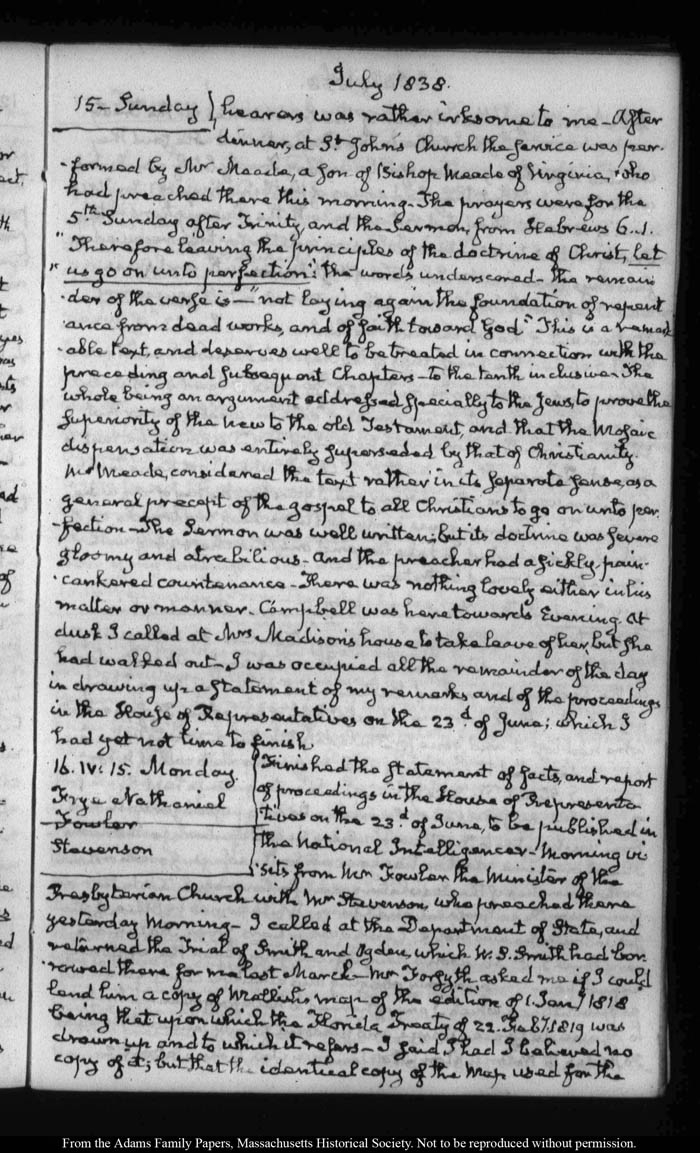 July 1838.
15 – Sunday hearers was rather irksome to me – After
dinner, at St. John's Church the service was per-
-formed by Mr. Meade, a son of Bishop Meade of Virginia, who
had preached there this morning – The prayers were for the
5th Sunday after Trinity, and the Sermon, from Hebrews 6..1.
"Therefore leaving the principles of the doctrine of Christ, let
"us go on unto perfection": the words underscored – the remain
-der of the verse is – "not laying again the foundation of repent
-ance from dead works, and of faith toward God" This is a remark
-able text, and deserves well to be treated in connection with the
preceding and subsequent Chapters – to the tenth inclusive – The
whole being an argument addressed specially to the Jews, to prove the
superiority of the new to the old Testament, and that the Mosaic
dispensation was entirely superseded by that of Christianity.
Mr Meade, considered the text rather in its separate sense, as a
general precept of the gospel to all Christians to go on unto per
-fection – The Sermon was well written; but its doctrine was severe
gloomy and atrabilious – and the preacher had a sickly, pain-
-cankered countenance – There was nothing lovely either in his
matter or manner. Campbell was here towards Evening. At
dusk I called at Mrs Madison's house to take leave of her, but she
had walked out – I was occupied all the remainder of the day
in drawing up a statement of my remarks and of the proceedings
in the House of Representatives on the 23d of June; which I
had yet not time to finish
16. IV: 15. Monday. Finished the statement of facts, and report
Frye Nathaniel of proceedings in the House of Representa
Fowler tives on the 23d of June, to be published in
Stevenson the National Intelligencer – Morning vi
-sits from Mr Fowler the Minister of the
Presbyterian Church with Mr Stevenson, who preached there
yesterday Morning – I called at the Department of State, and
returned the Trial of Smith and Ogden, which W. S. Smith had bor
-rowed there for me last March – Mr Forsyth asked me if I could
lend him a copy of Mellish's map of the edition of 1. Jany 1818
being that upon which the Florida Treaty of 22. Feby 1819 was
drawn up and to which it refers – I said I had I believed no
copy of it; but that the identical copy of the Map used for the
From the Adams Family Papers, Massachusetts Historical Society. Not to be reproduced without permission.